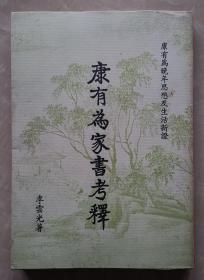 康有為晚年思想及生活新證
康有為家書考釋
李雲光著